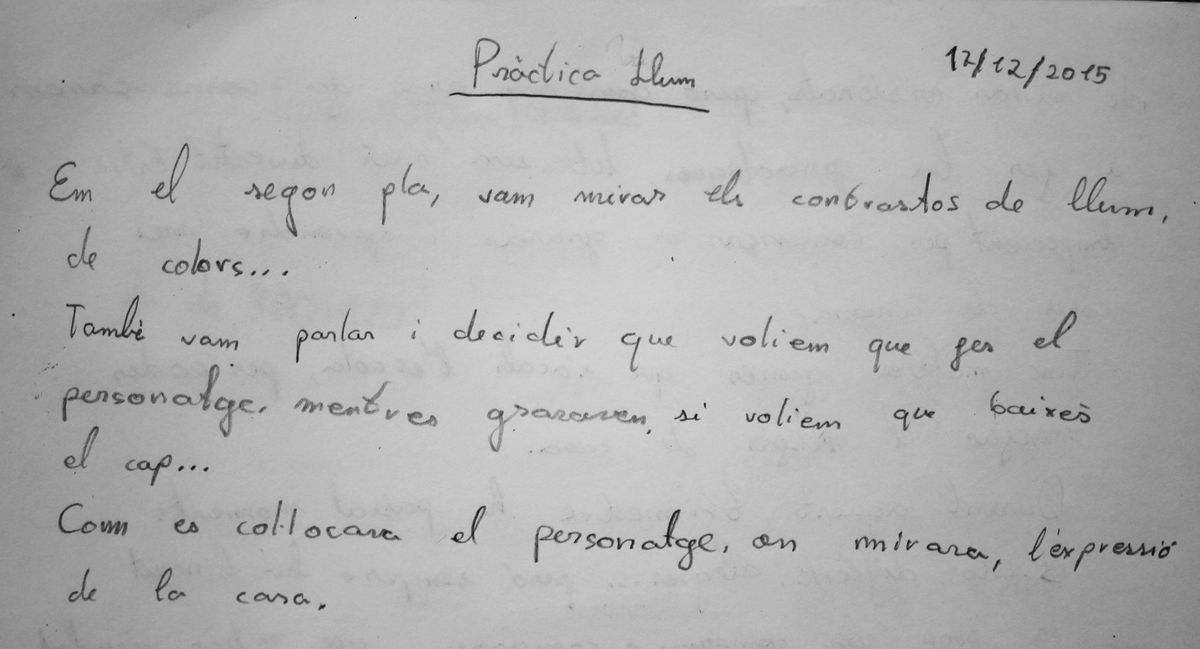 Pràctica Llum
17/12/2015
Em el segon pla, vam mirar els contrastos de llum,
de colors...
També vam parlar i decidir que voliem que fes el
personatge, mentres gravaven, si voliem que baixès
el cap...
Com es col·locara el personatge, on mirara, l'expressió
de la cara.